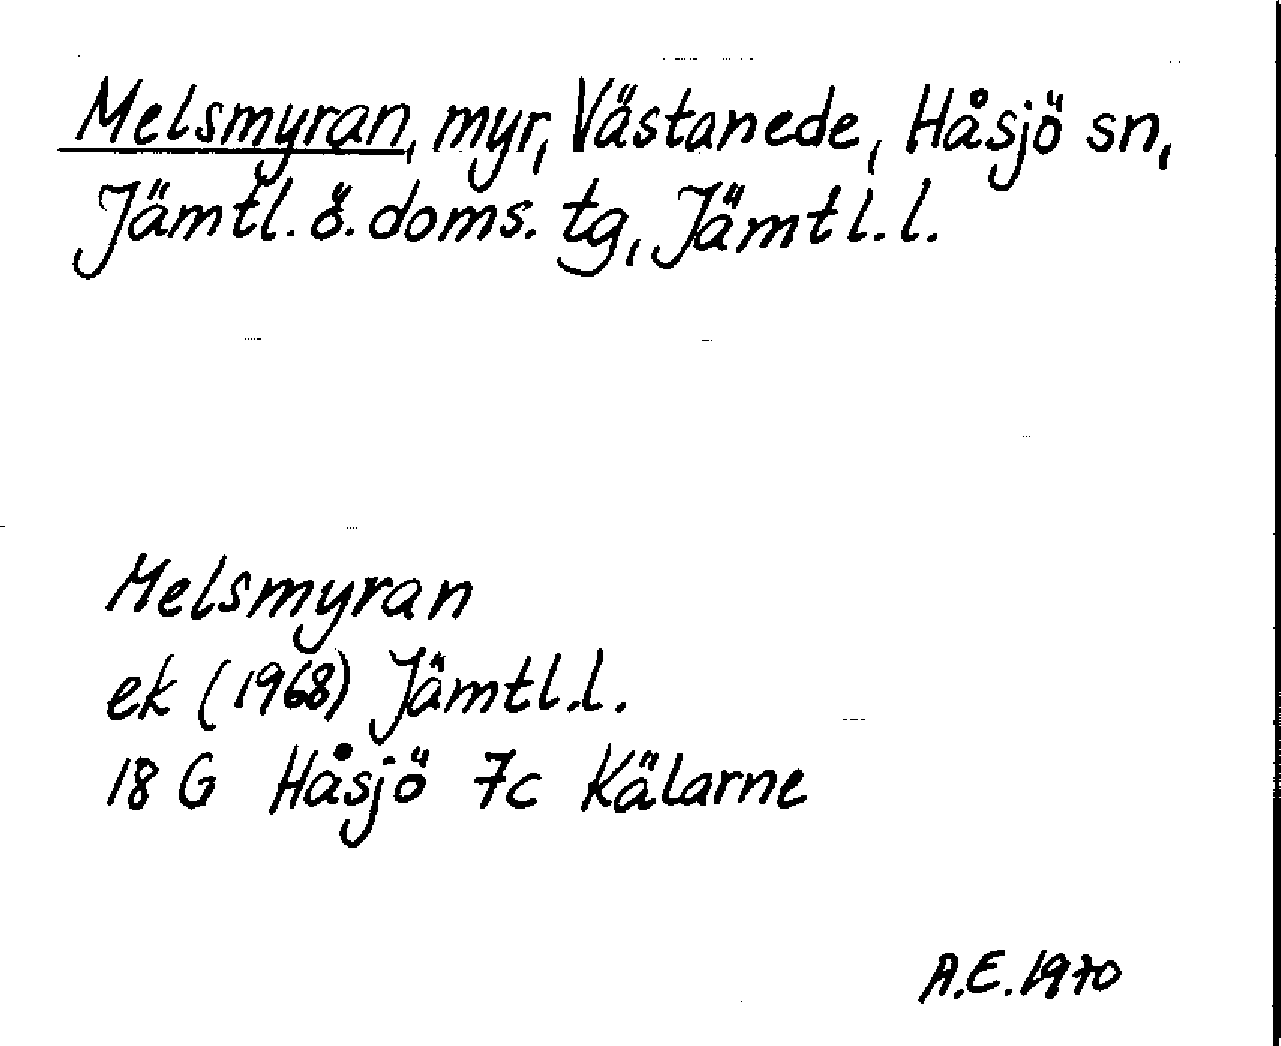 Melsmyran, myr, Västanede, Håsjö sn,
Jämtl. ö. doms. tg, Jämtl. l.
Melsmyran
ek (1968) Jämtl. l.
18 G Håsjö 7c Kälarne
A.E. 1970